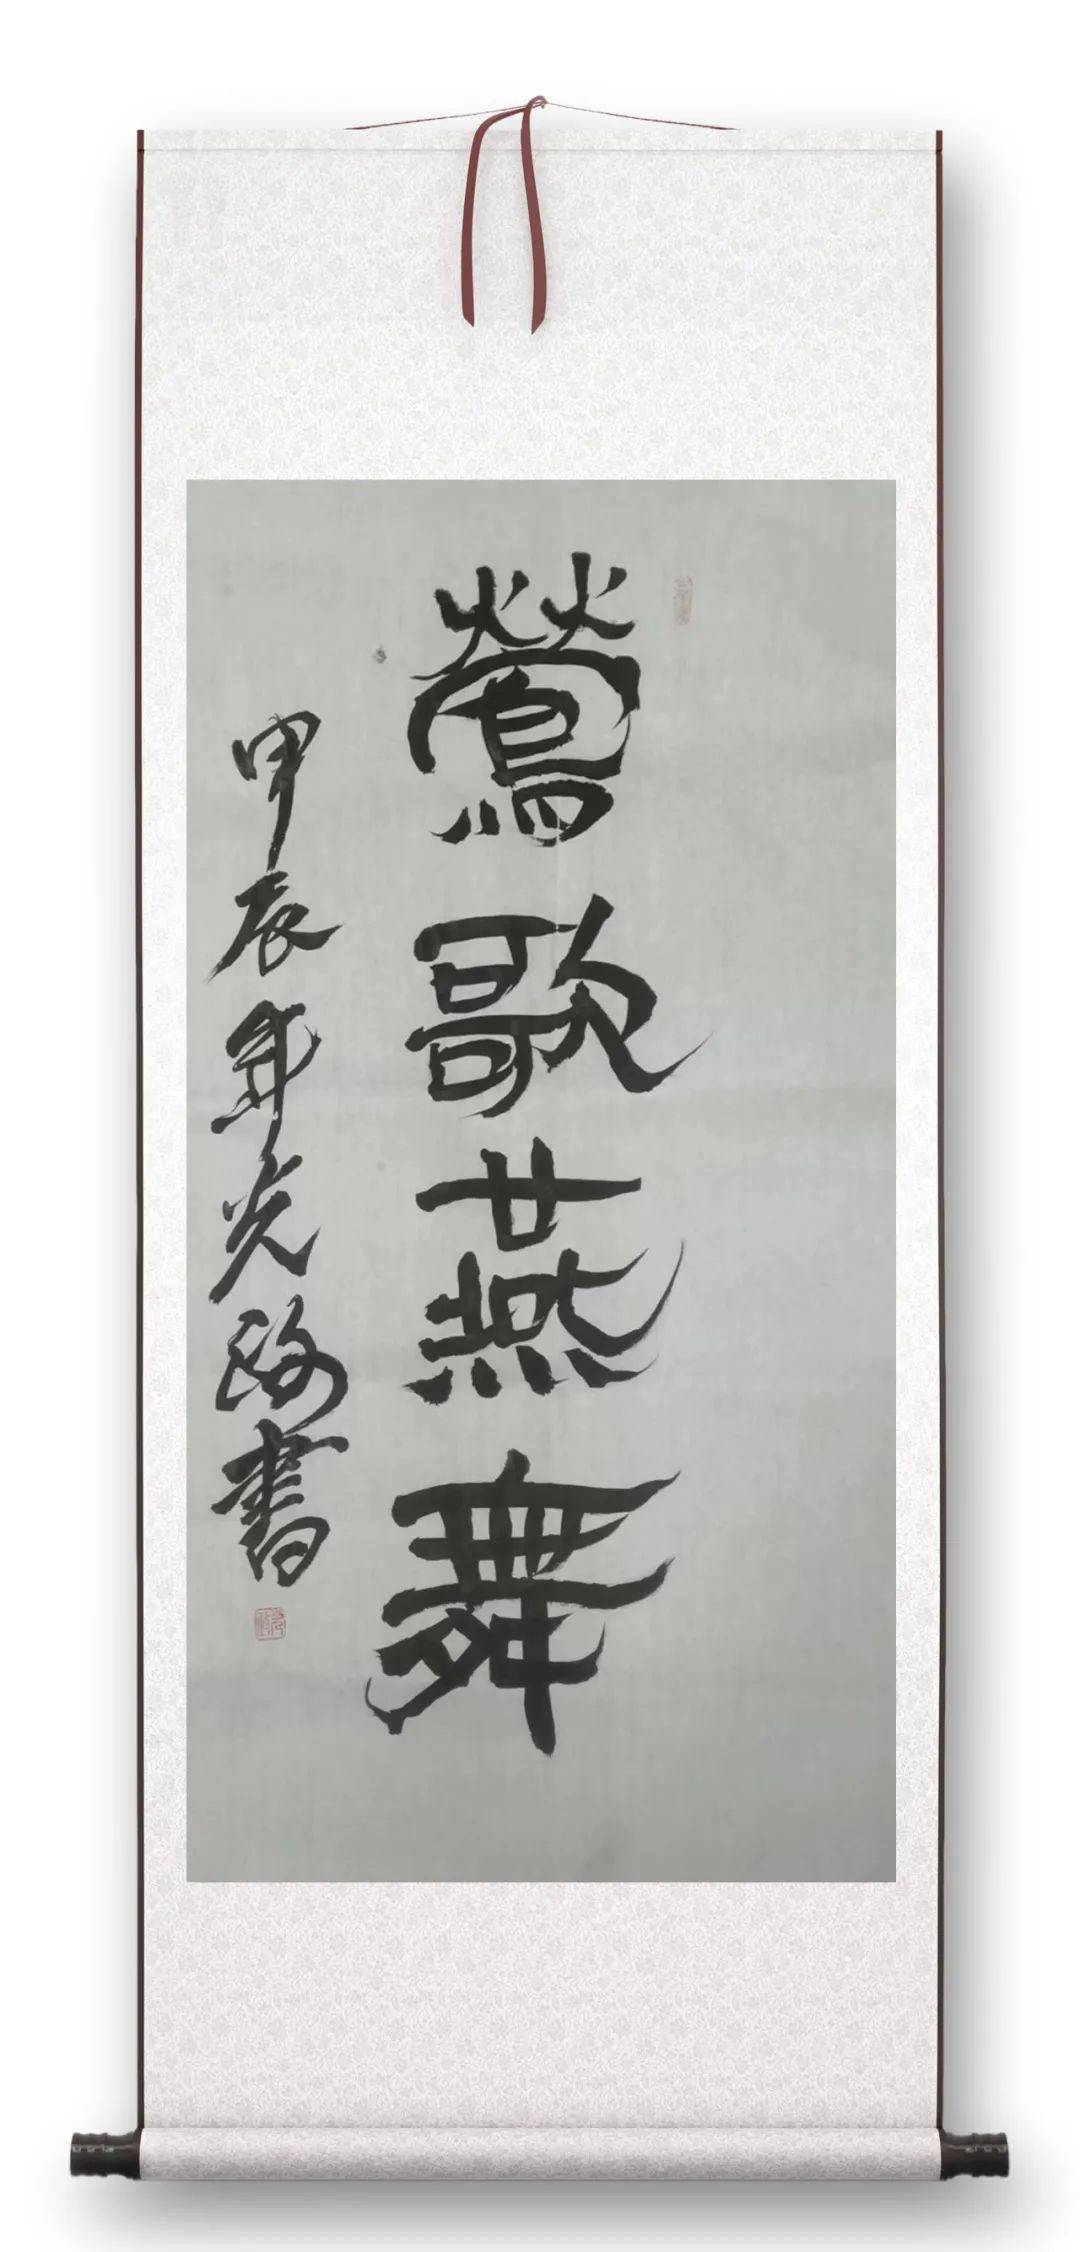 鶯歌燕舞
甲辰年光政書